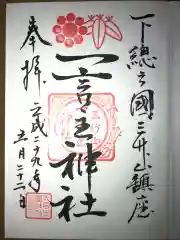 下總之國三竹山鎮座
奉拝
一言主神社
平成二十九年
五月二十二日